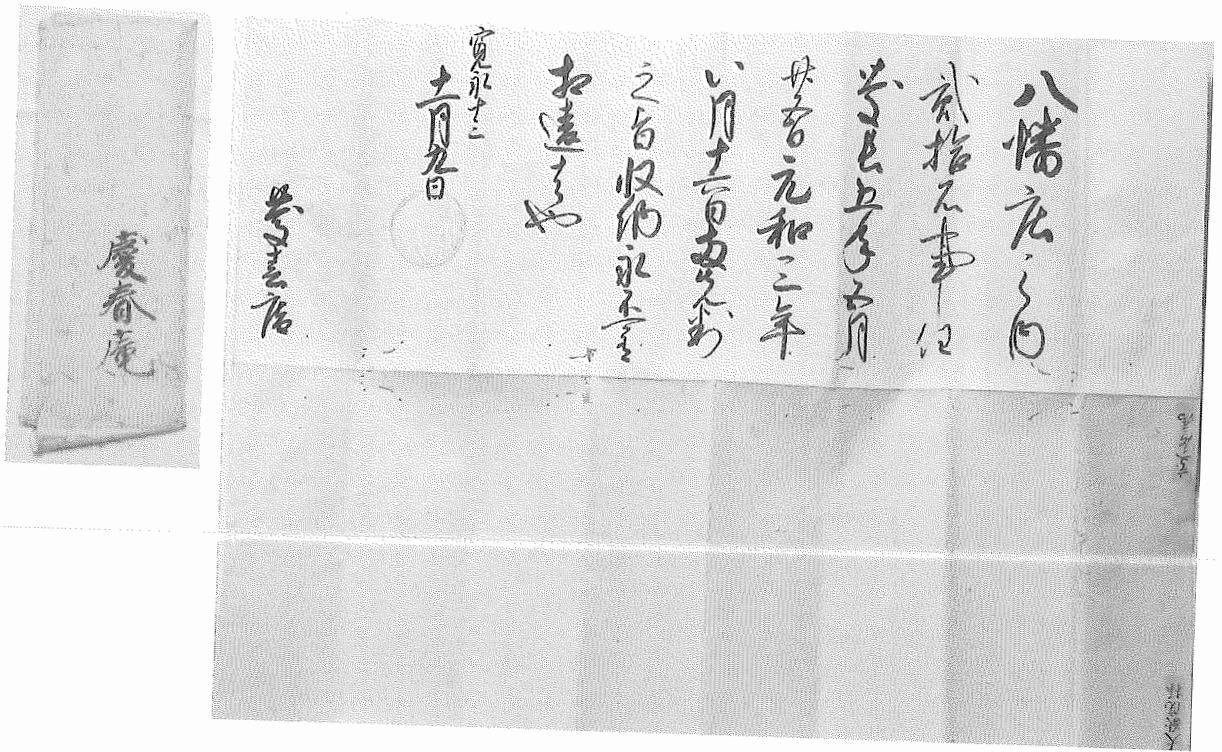 八幡庄之内
貳拾石事任
慶長五年五月
廿五日元和三年
八月十六日両先判
之旨収納永不可有
相違者也
寛永十三
十一月九日
慶春庵
慶春庵